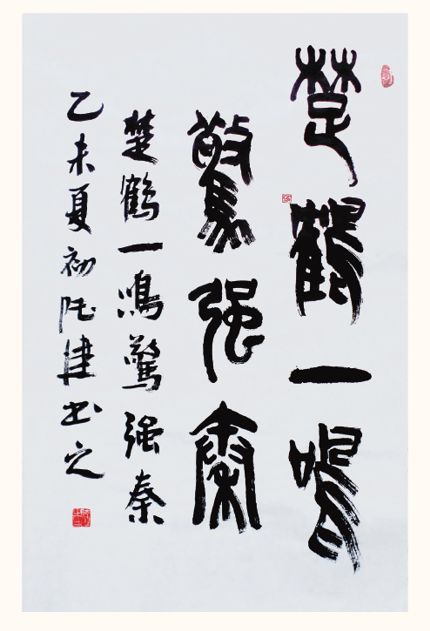 楚鹤一鸣
惊强秦
楚鹤一鸣惊强秦
乙未夏初阮建书之